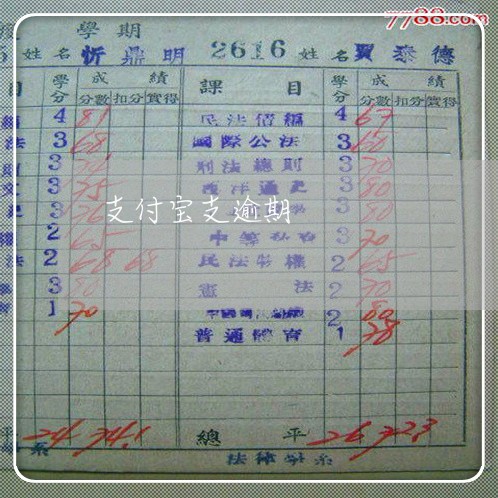 7788.com
學期
姓名 忻鼎明 2616 姓名 賈泰德
目 學分 成績 課目 學分 成績
分數 扣分 實得 分數 扣分 實得
4 81 民法債編 4 67
法 3 68 國際公法 3 60
3 刑法總則 3 70
3 75 西洋通史 3 80
3 76 3 80
2 65 3 70
法 2 68 68 民法物權 2 65
3 80 憲法 2 70
1 70 2 80
普通體育 1 78
支付宝支逾期
平 24 74.1 總平 26 72.3
系 法律學系